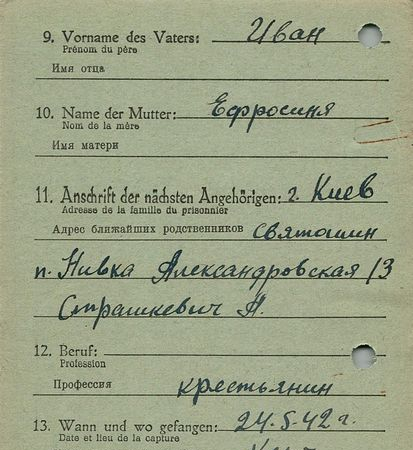 9. Vorname des Vaters: Иван
Prénom du père
Имя отца
10. Name der Mutter: Ефросиня
Nom de la mère
Имя матери
11. Anschrift der nächsten Angehörigen: г. Киев
Adresse de la famille du prisonnier
Адрес ближайших родственников Святошин
п. Нивка Александровская 13
Страшкевич А.
12. Beruf:
Profession
Профессия крестьянин
13. Wann und wo gefangen: 24.5.42 г.
Date et lieu de la capture